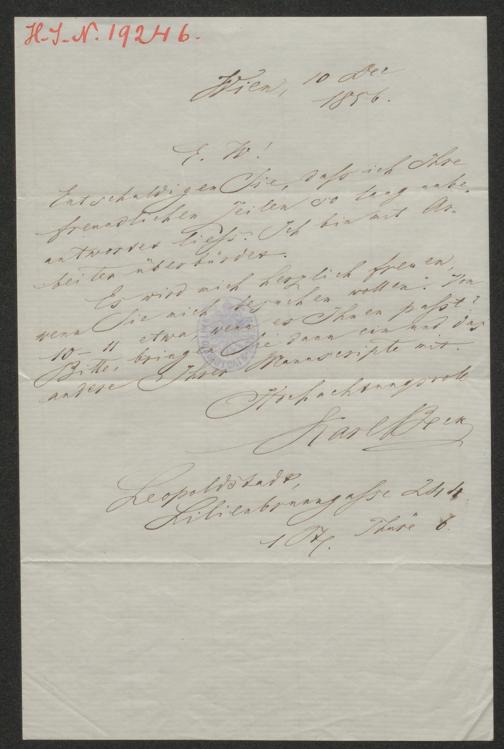 H.I.N. 19246.
Wien, 10 Dec
1856.
E. W!
Entschuldigen Sie, daß ich Ihre
freundlichen Zeilen so lang unbe-
antwortet ließ. Ich bin mit Ar-
beiten überbürdet.
Es wird mich herzlich freuen,
wenn Sie mich besuchen wollen. Von
10–11 etwa, wenn es Ihnen paßt?
Bitte, bringen Sie dann ein und das
andere Ihrer Manuscripte mit.
Hochachtungsvoll
Karl Beck
Leopoldstadt,
Lilienbrunngasse 244
1 St. Thüre 8